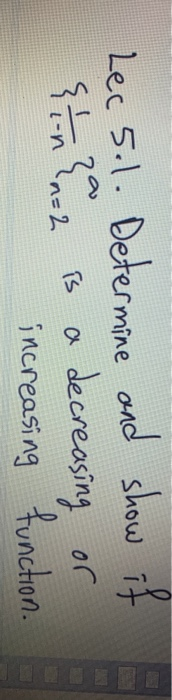 Lec 5.1. Determine and show if
{1/(1-n)}∞n=2 is a decreasing or
increasing function.